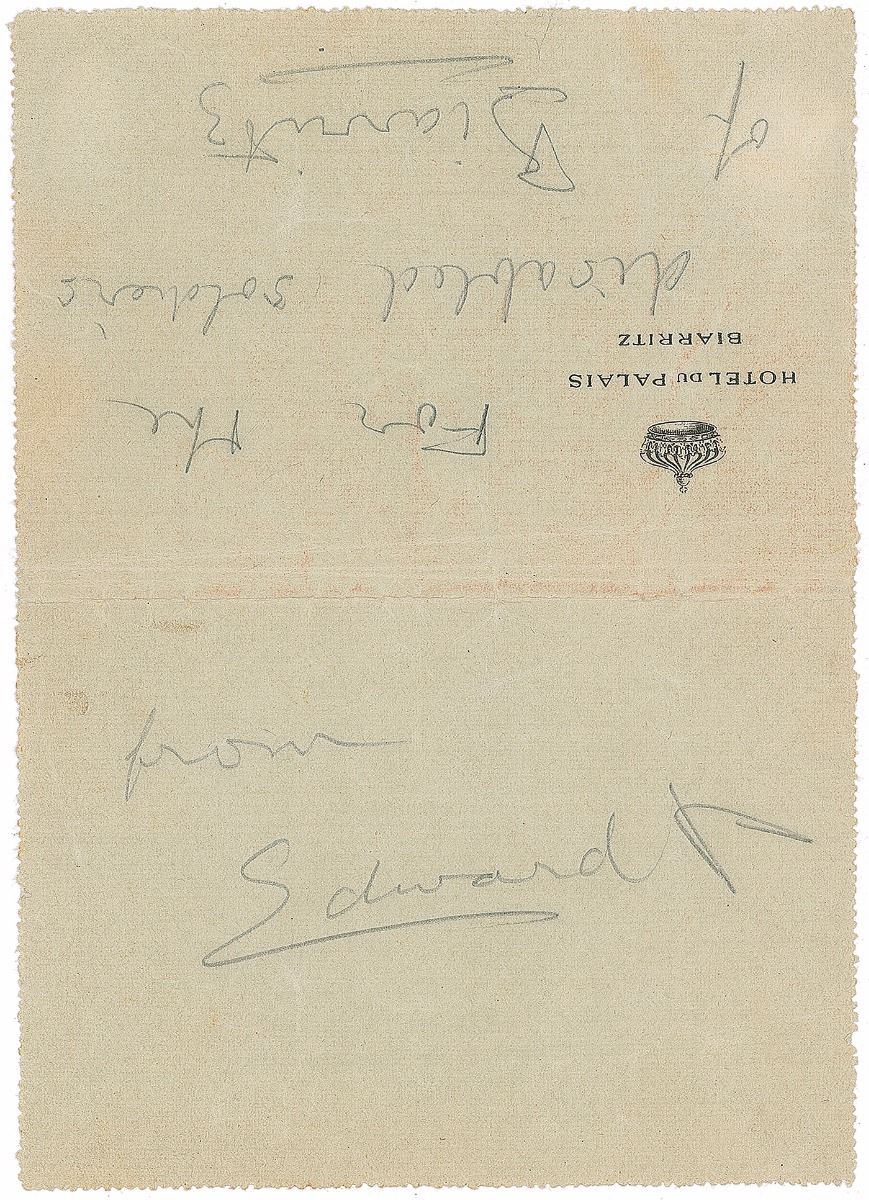 HOTEL DU PALAIS
BIARRITZ
For the
disabled soldiers
of Biarritz
from
Edward